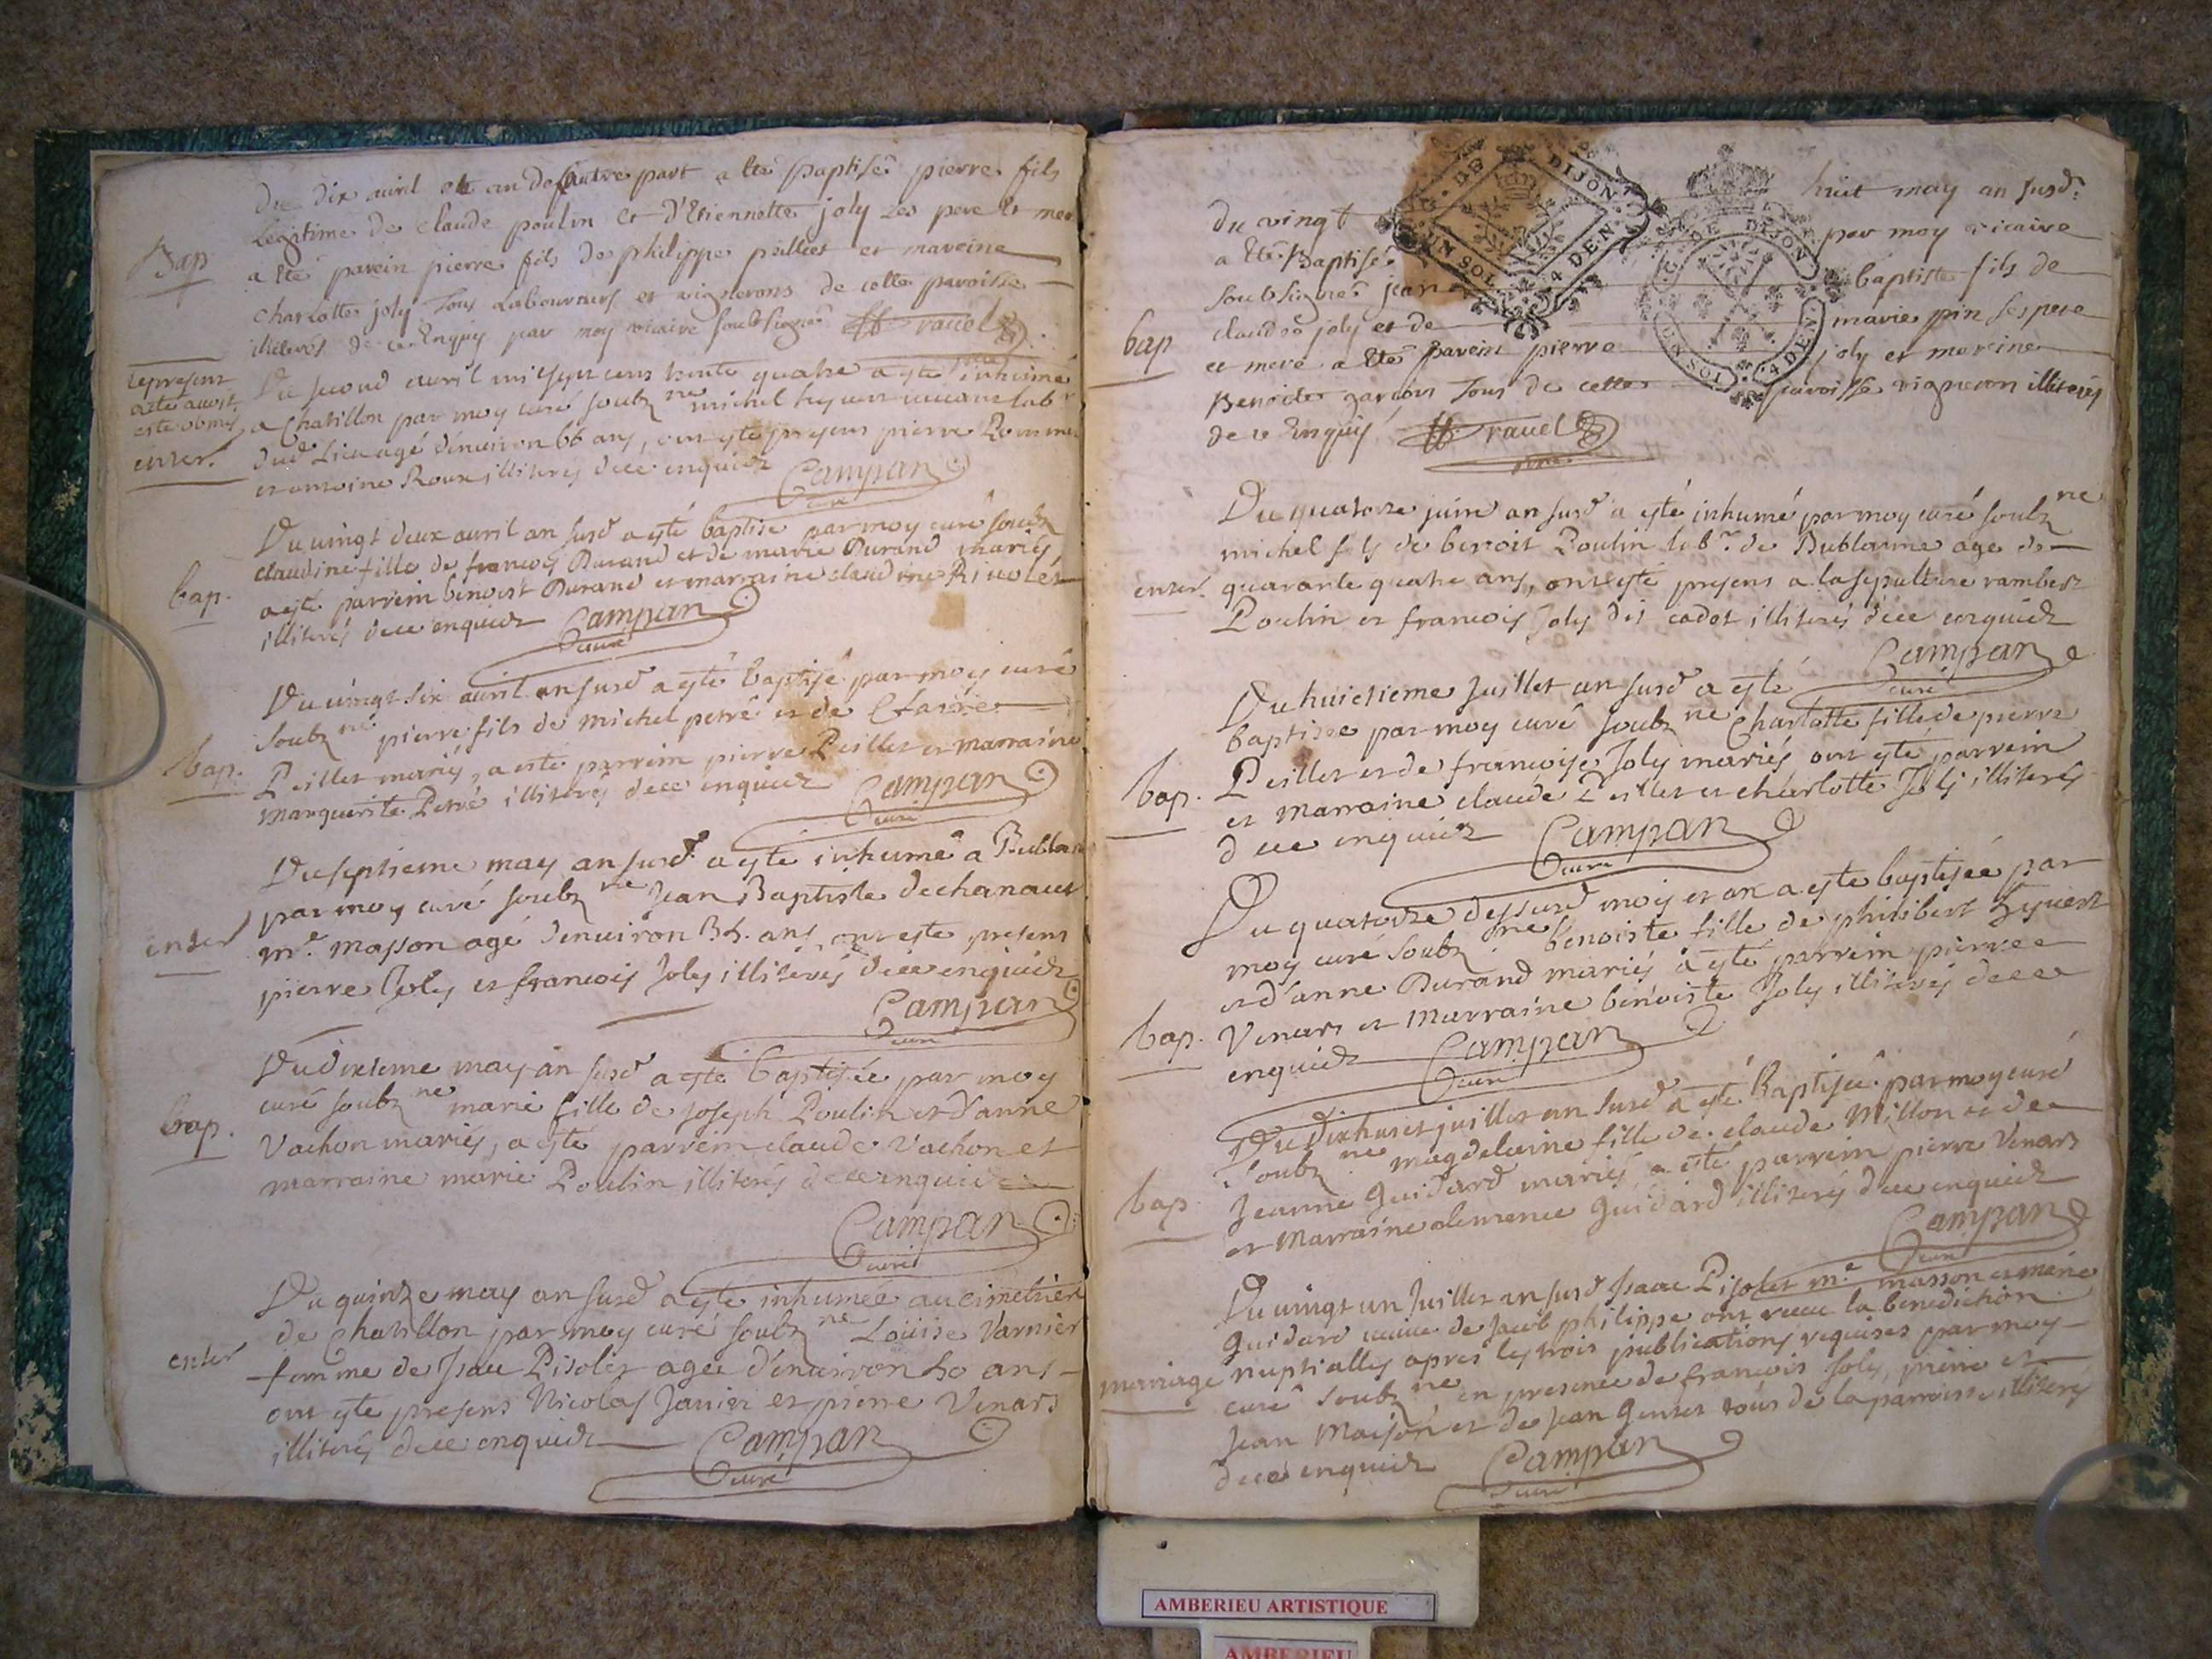 Du dix avril an de autre part a ete baptisé pierre fils
legitime de claude poulin et d'Etiennette joly ses pere et mere
Bap
a ete parein pierre fils de philippe peilliet et mareine
charlotte joly tous Laboureurs et vignerons de cette paroisse
illiteres de ce Enquis par moy vicaire soubsigné ravel
le present
acte
este obmis
enter.
Du second avril mil sept cens trente quatre a esté inhumé
a Chatillon par moy curé soubz ne michel lab r
dud Lieu agé d'environ 66 ans, ont esté presens pierre Pommier
et antoine Roux illiterés de ce enquiez Campan
curé
Du vingt deux avril an susd a esté baptisé par moy curé soubz
claudine fille de francois Durand et de marie Durand mariés,
bap.
a esté parrein benoist Durand et marraine claudine Rivolet
illiterés de ce enquiez Campan
curé
Du vingt six avril an susd a esté baptisé par moy curé
soubz né pierre fils de michel petré et de Claire
bap.
Peillet mariés, a esté parrein pierre Peillet et marraine
marguerite Petré illiterés de ce enquiez Campan
curé
Du septieme may an susd a esté inhumé a Bublanne
par moy curé soubz ne Jean Baptiste dechanaux
enter
m.e masson agé d'environ ans, ont esté presens
pierre Joly et francois Joly illiterés de ce enquiez
Campan
curé
Du dixieme may an susd a esté baptisée par moy
curé soubz ne marie fille de Joseph Poulin et d'anne
bap.
Vachon mariés, a esté parrein claude Vachon et
marraine marie Poulin illiterés de ce enquiez
Campan
curé
Du quinze may an susd a esté inhumée au cimetriere
de Chatillon par moy curé soubz ne Loüise Varnier
enter
femme de Isaac Pisolet agée d'environ 50 ans
ont esté presens Nicolas Janin et pierre Venars
illiterés de ce enquiez Campan
curé
DE DIJON
UN SOL 4 DEN.
G. DE DIJON
UN SOL 4 DEN.
du vingt huit may an susd.
a Eté Baptisé par moy vicaire
soubsigné jean baptiste fils de
claude joly et de marie pin ses pere
bap
et mere a Eté parein pierre joly et mareine
Benoite tous de cette paroisse vigneron illiterés
de ce Enquis ravel
Du quatorze juin an susd a esté inhumé par moy curé soubz ne
michel fils de benoit Poulin lab.r de Bublanne agé de
enter.
quarante quatre ans, ont esté presens a la sepulture rambert
Poulin et francois Joly dit cadet illiterés de ce enquiez
Campan
curé
Du huictieme Juillet an susd a esté
baptisée par moy curé soubz ne Charlotte fille de pierre
bap.
Peillet et de francoise Joly mariés ont esté parrein
et marraine claude Peillet et charlotte Joly illiterés
de ce enquiez Campan
curé
Du quatorze des susd mois et an a esté baptisée par
moy curé soubz ne benoiste fille de philibert
et d'anne Durand mariés a esté parrein pierre
bap.
Venars et marraine benoiste Joly illiterés de ce
enquiez Campan
curé
Du dixhuict juillet an susd a esté Baptisée par moy curé
soubz ne magdelaine fille de claude Millon et de
bap.
Jeanne Guidard mariés a esté parrein pierre Venars
et marraine clemence Guidard illiterés de ce enquiez
Campan
curé
Du vingt un Juillet an susd Isaac Pisolet m.e masson et marie
Guidard veuve de Jacob philippe ont receu la benediction
mariage
nuptialle apres les trois publications requises par moy
curé soubz ne en presence de francois Joly, pierre et
Jean Maison et de Jean Genet tous de la parroisse illiterés
de ce enquiez Campan
curé
AMBERIEU ARTISTIQUE
AMBERIEU